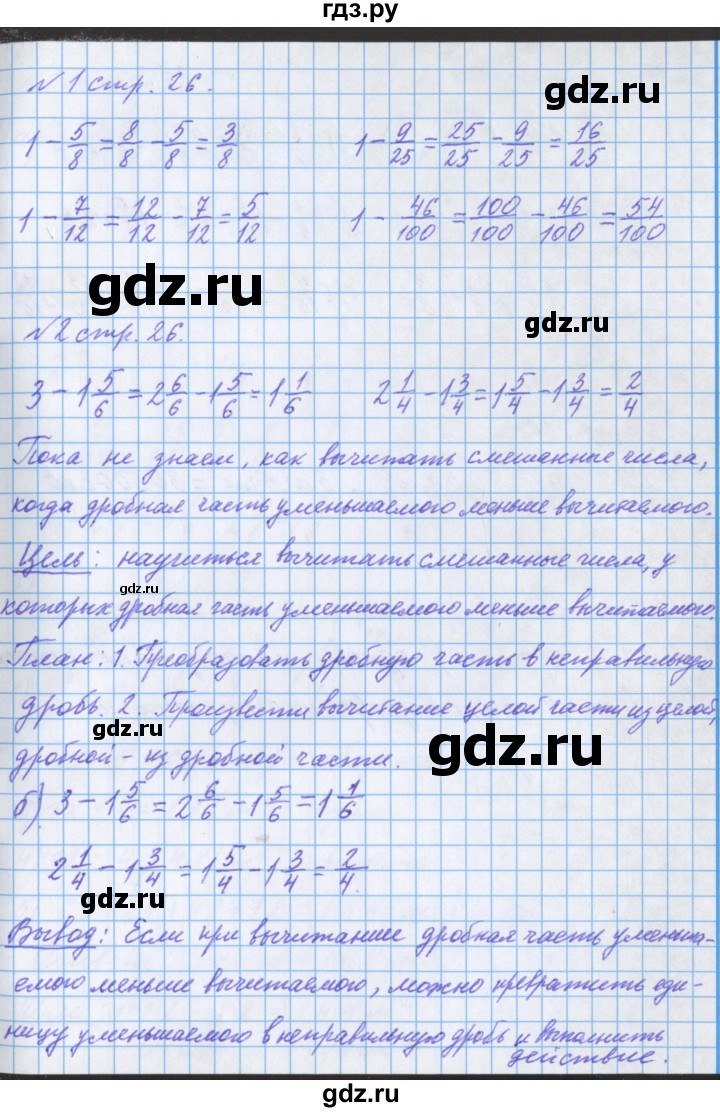 гдз.ру
№1 стр. 26.
gdz.ru
1 - 5/8 = 8/8 - 5/8 = 3/8    1 - 9/25 = 25/25 - 9/25 = 16/25
1 - 7/12 = 12/12 - 7/12 = 5/12    1 - 46/100 = 100/100 - 46/100 = 54/100
gdz.ru
№2 стр. 26.
gdz.ru
3 - 1 5/6 = 2 6/6 - 1 5/6 = 1 1/6    2 1/4 - 1 3/4 = 1 5/4 - 1 3/4 = 2/4
Пока не знаем, как вычитать смешанные числа,
когда дробная часть уменьшаемого меньше вычитаемого.
Цель: научиться вычитать смешанные числа, у
gdz.ru
которых дробная часть уменьшаемого меньше вычитаемого.
План: 1. Преобразовать дробную часть в неправильную
дробь. 2. Произвести вычитание целой части из целой,
gdz.ru
gdz.ru
дробной - из дробной части.
б) 3 - 1 5/6 = 2 6/6 - 1 5/6 = 1 1/6
2 1/4 - 1 3/4 = 1 5/4 - 1 3/4 = 2/4.
gdz.ru
Вывод: Если при вычитание дробная часть уменьша-
емого меньше вычитаемого, можно превратить еди-
ницу уменьшаемого в неправильную дробь и выполнить
действие.
gdz.ru
gdz.ru